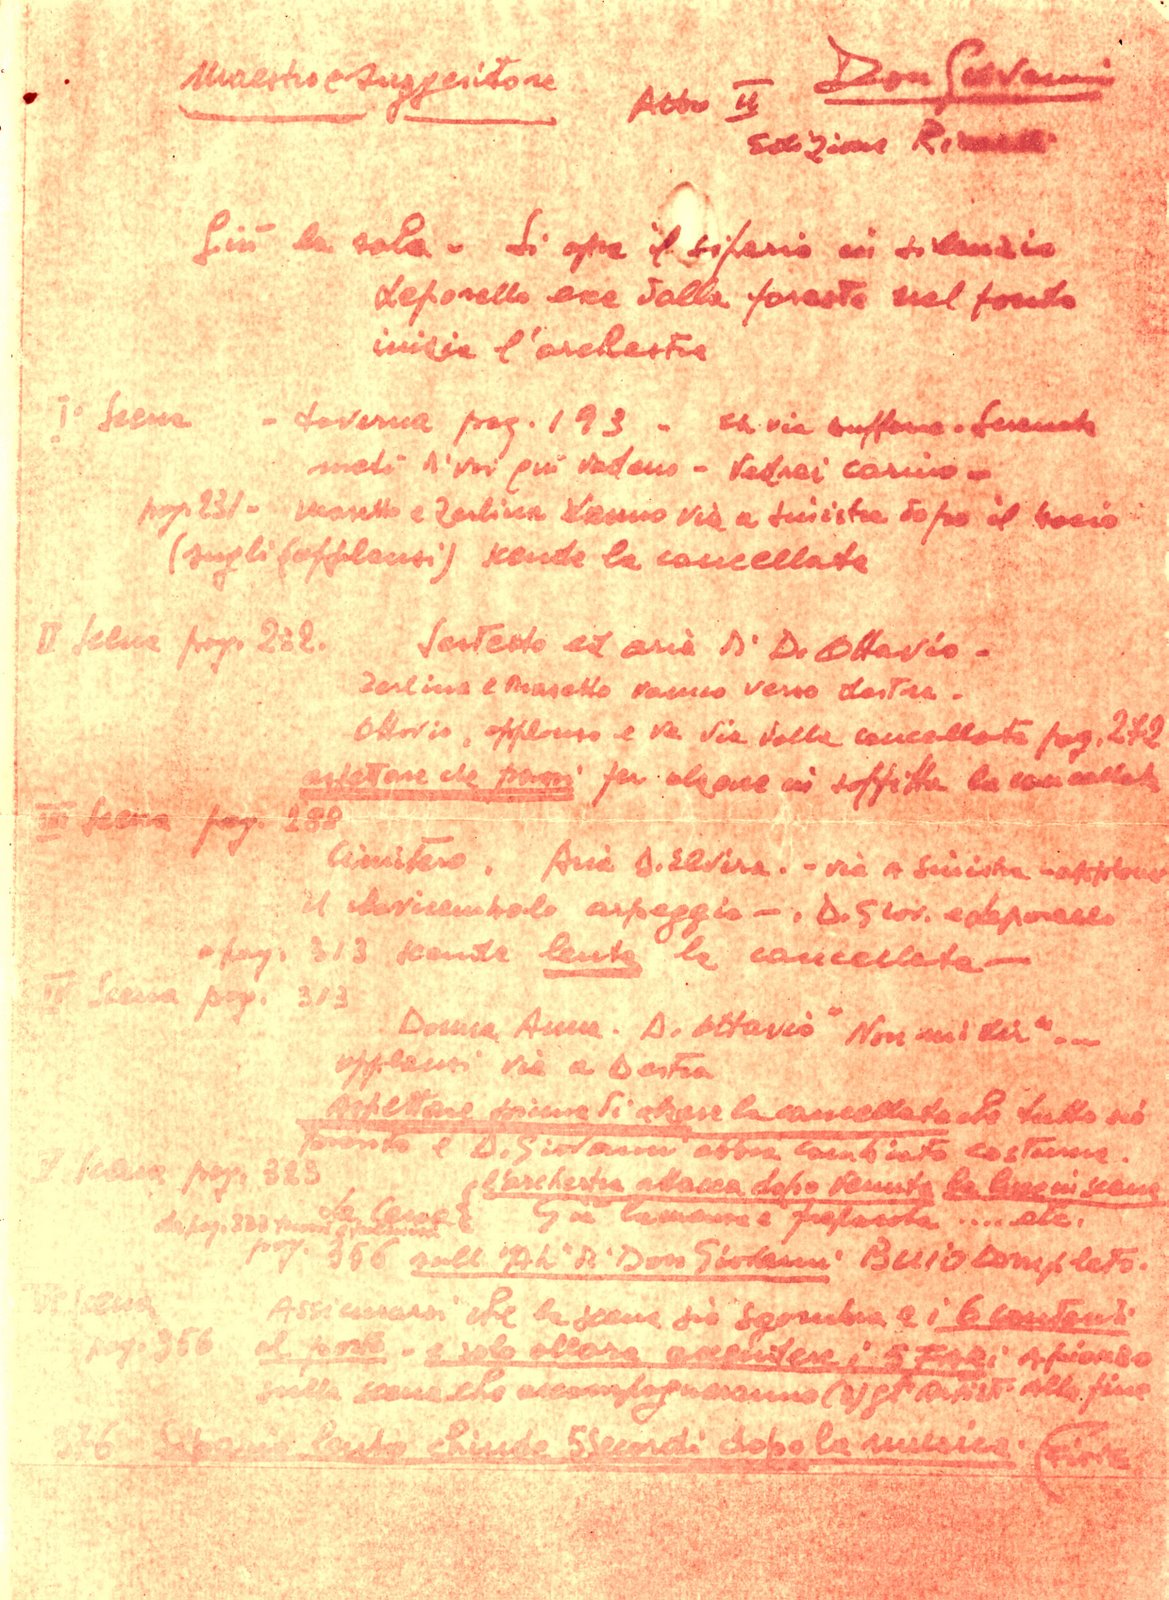 Maestro e Suggeritore
Atto II Don Giovanni
Edizione
Giù la sala - Si apre il sipario in silenzio
Leporello esce dalla foresta nel fondo
inizia l'orchestra
I Scena - Taverna pag. 193 - Eh via buffone - Serenata
metà di voi quà vadano - Vedrai carino -
pag. 231 - Masetto e Zerlina vanno via a sinistra dopo il bacio
(sugli (applausi) scende la cancellata
II Scena pag. 232. Sestetto ed aria di D. Ottavio -
Zerlina e Masetto vanno verso destra -
Ottavio, applauso e va via dalla cancellata pag. 272
aspettare che passi per alzare in soffitta la cancellata
III Scena pag. 288
Cimitero. Aria D. Elvira. - via a sinistra - applauso
il clavicembalo arpeggia - . D. Giov. e Leporello
pag. 313 scende lenta la cancellata -
IV Scena pag. 313
Donna Anna. D. Ottavio "Non mi dir" . --
applausi via a Destra
Aspettare prima di alzare la cancellata che tutto sia
pronto e D. Giovanni abbia cambiato costume.
V Scena pag. 323 L'orchestra attacca dopo venuta la luce in scena
La Cena Già la mensa è preparata .... etc.
pag. 366 sull "Ah" di Don Giovanni BUIO completo.
VI Scena Assicurarsi che la scena sia sgombra e i 6 cantanti
pag. 366 al posto - e solo allora accendere i 5
sulla scena che accompagneranno gli Artisti alla fine
376 Sipario lento chiude 5 secondi dopo la musica. (Fine